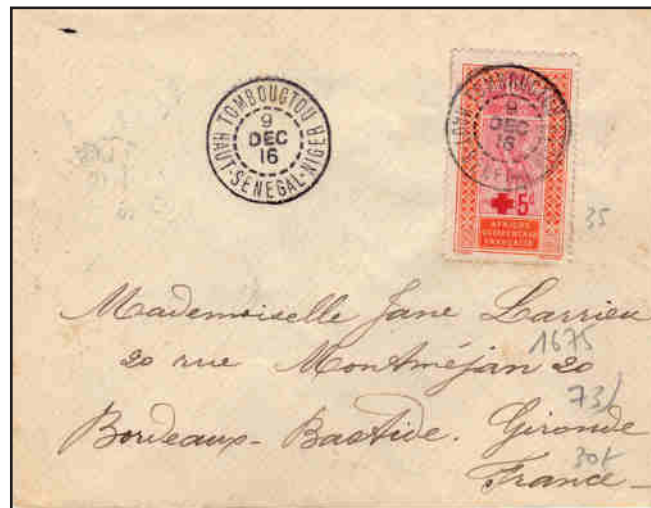 TOMBOUCTOU
9
DEC
16
HAUT-SENEGAL-NIGER
9
DEC
16
+5c
AFRIQUE
OCCIDENTALE
FRANÇAISE
35
Mademoiselle Jane Larrieu
1675
20 rue Montméjan 20
73f
Bordeaux - Bastide. Gironde
30f
France -